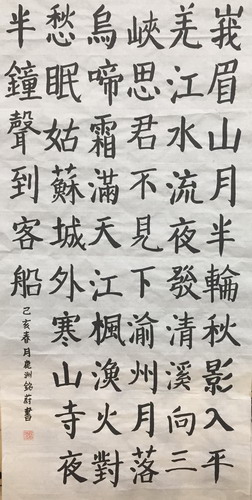 峩眉山月半輪秋影入平
羌江水流夜發清溪向三
峽思君不見下渝州月落
烏啼霜滿天江楓漁火對
愁眠姑蘇城外寒山寺夜
半鐘聲到客船
己亥春月洲銘蔚書